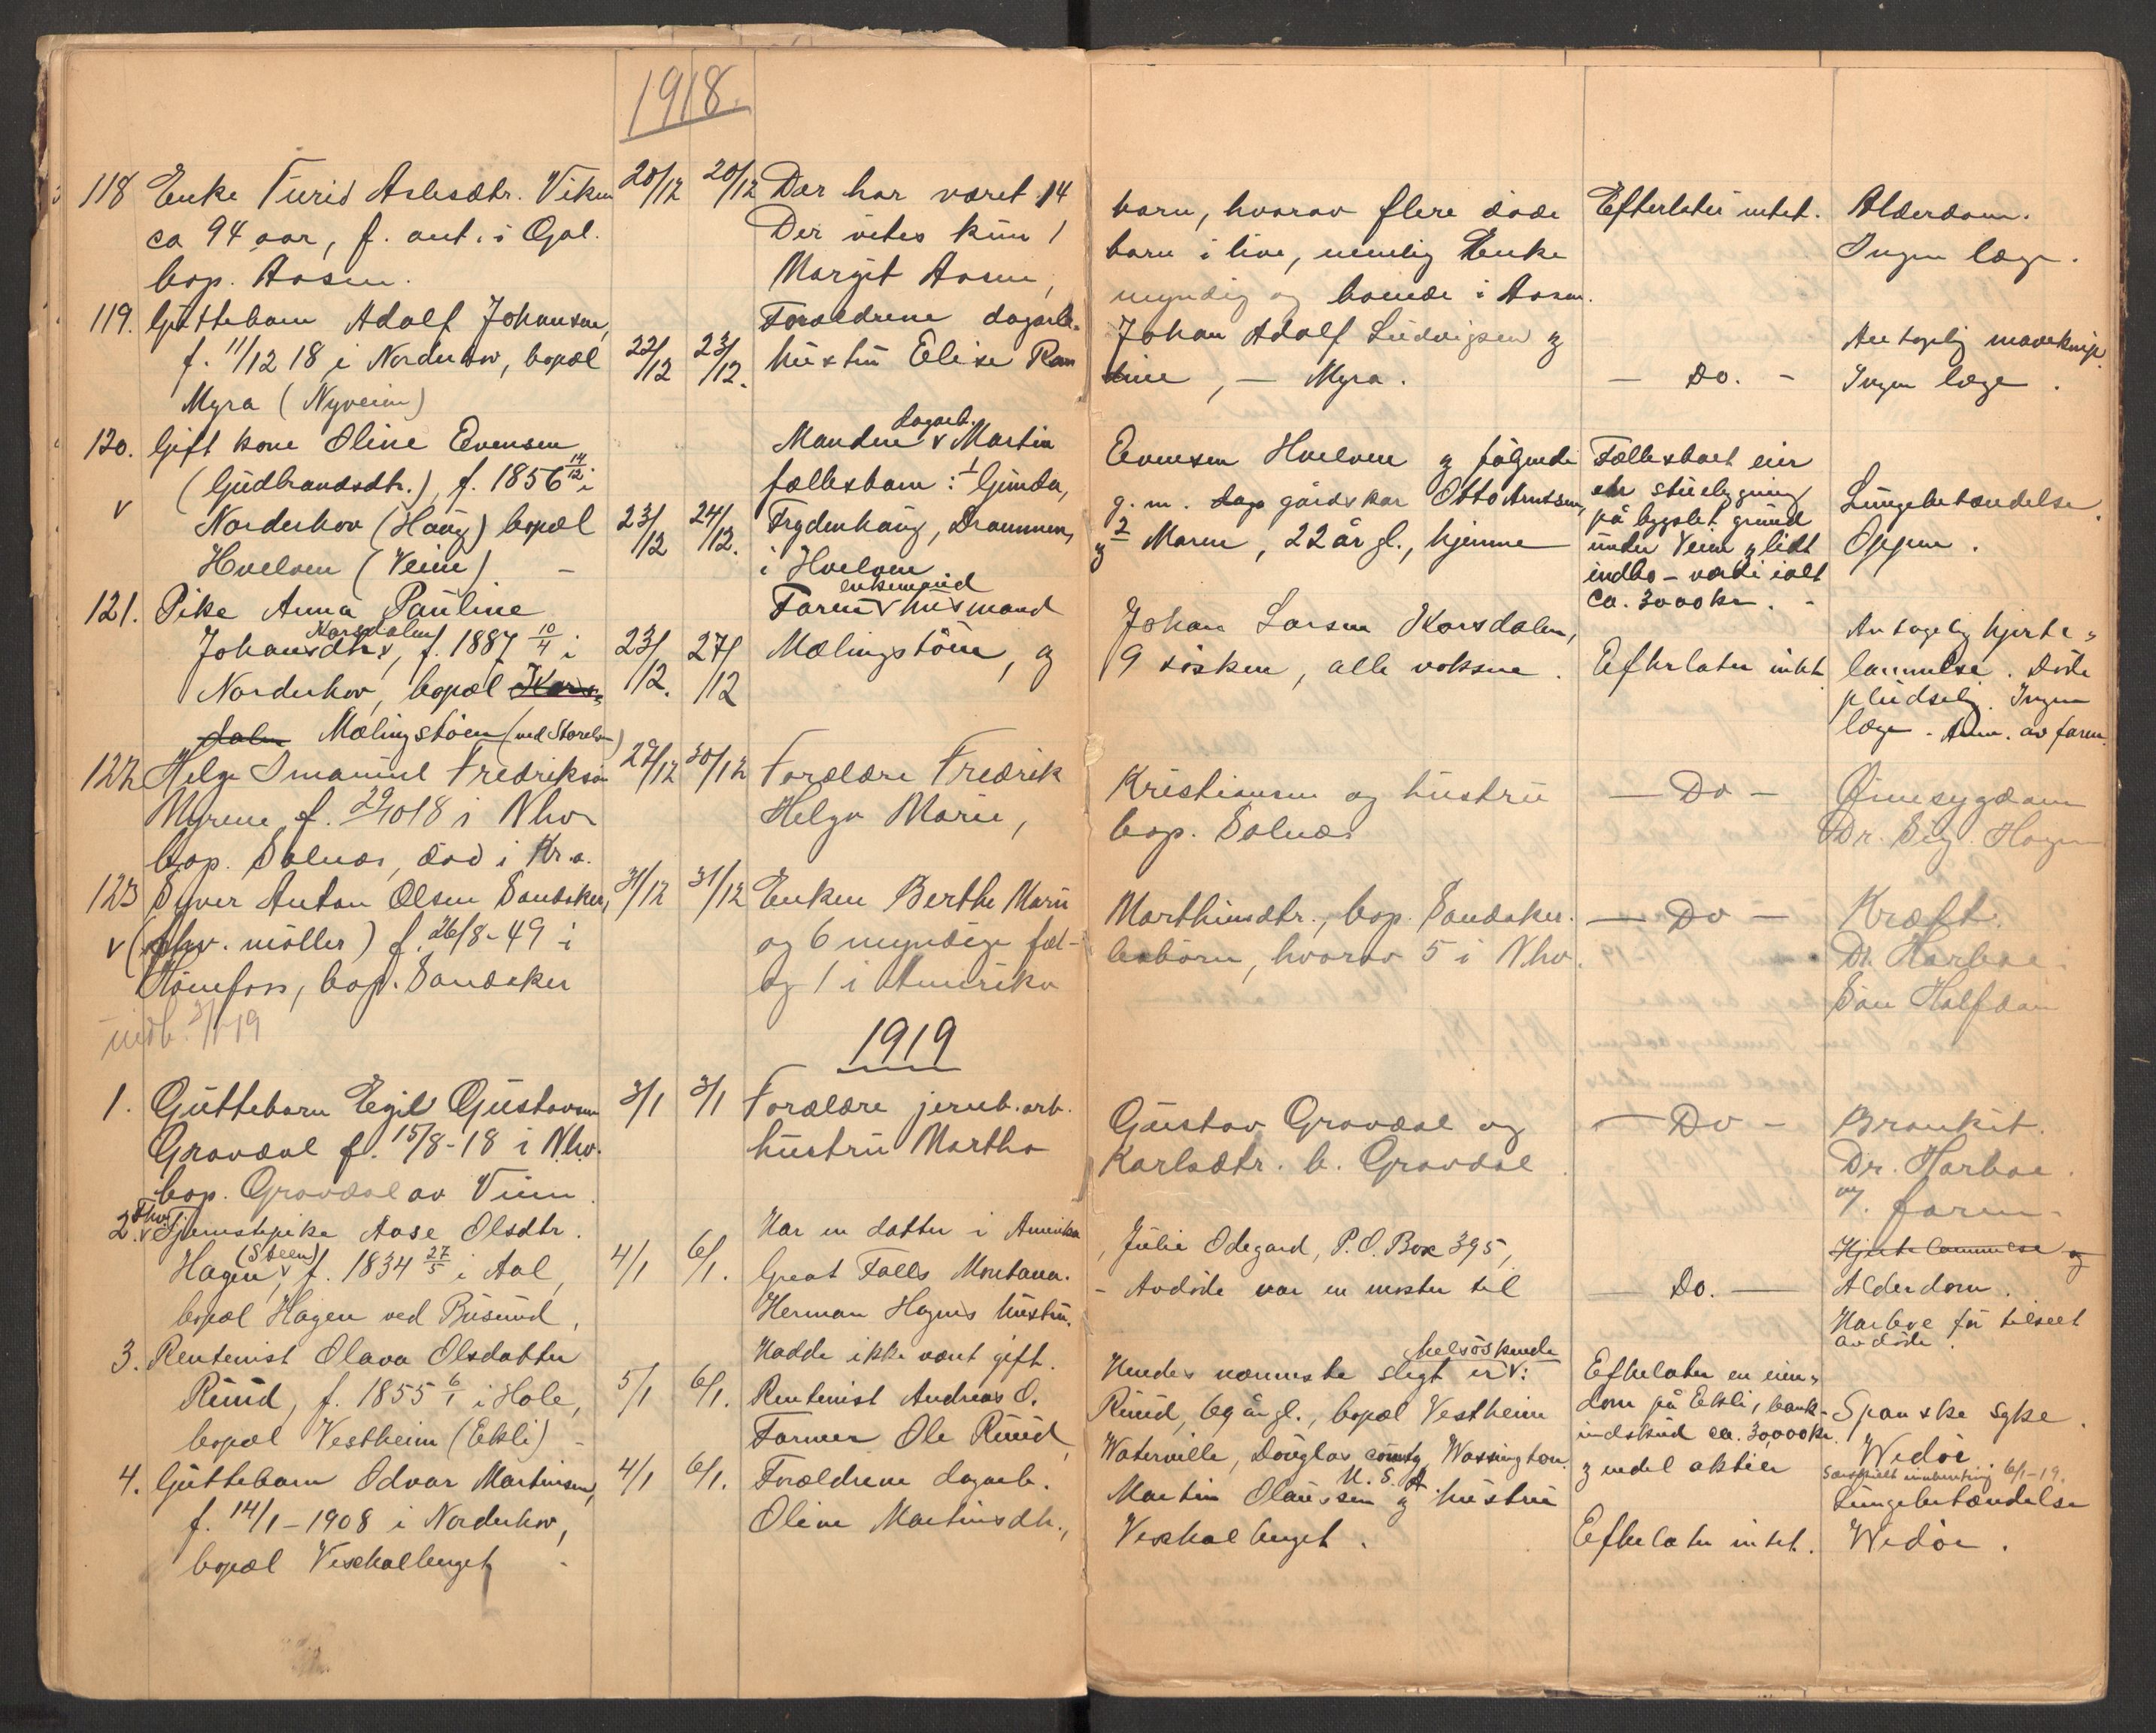 1918.
118 Enke Turid Aslesdtr. Viken 20/12 20/12 Der har været 14 barn, hvorav flere døde Efterlater intet. Alderdom.
ca 94 aar, f. ant. i Gol. Der vites kun 1 barn i live, nemlig Enke Ingen læge.
bop. Aasen. Margit Aasen, myndig og boende i Aasen.
119. Guttebarn Adolf Johansen, Forældrene dagarb. Johan Adolf Ludvigsen og Antagelig maveknip.
f. 11/12 18 i Norderhov, bopæl 22/12 23/12. hustru Elise Ram
tine, — Myra. — Do. — Ingen læge.
Myra (Nyveien)
120. Gift kone Oline Evensen Manden dagarb. Martin Evensen Hvelven og følgende Fællesboet eier
(Gudbrandsdtr.), f. 1856 14/12 i fællesbarn: 1 Gunda, g. m. gårdskar Otto Arntsen, en stuebygning Lungebetændelse.
v Norderhov (Haug) bopæl 23/12 24/12. Frydenhaug, Drammen, og 2 Maren, 22 år gl., hjemme på bygslet grund
Hvelven (Veien) — i Hvelven under Veien og lidt Oppen.
indbo – værdi ialt
ca. 3000 kr. -
121. Pike Anna Pauline Faren enkemand husmand Johan Larsen Korsdalen, Antagelig hjerte-
Johansdtr. Korsdalen, f. 1887 10/4 i 23/12. 27/12 Mælingstøen, og 9 søsken, alle voksne. Efterlater intet lammelse. Døde
Norderhov, bopæl Kors- pludselig. Ingen
dalen Mælingstøen (ved Storelven) læge. Anm. av faren.
122 Helge Imanuel Fredriksen 29/12 30/12 Forældre Fredrik Kristiansen og hustru — Do — Øinesygdom
Myrene, f. 29/10 18 i Nhov Helga Marie, bop. Solnes Dr. Sig. Hagen
bop. Solnes, død i Kr.a.
123 Syver Anton Olsen Sandaker, 31/12 31/12 Enken Berthe Marie Marthinsdtr., bop. Sandaker. — Do — Kræft.
v (fhv. møller) f. 26/8-49 i og 6 myndige fæl- lesbørn, hvorav 5 i Nhov. Dr. Harboe.
Hønefoss, bop. Sandaker og 1 i Amerika Søn Halfdan
indb. 3/1-19
1919
1. Guttebarn Egil Gustavsen 3/1 3/1 Forældre jernb. arb. Gustav Gravdal og — Do — Bronkit.
Gravdal f. 15/8-18 i Nhov. hustru Martha Karlsdtr. b. Gravdal. Dr. Harboe.
bop. Gravdal av Veien. v/ faren.
2. Fhv. Tjenestepike Aase Olsdtr. Har en datter i Amerika, Julie Odegard, P.O. Box 395, Hjertelammelse og
Hagen (Steen), f. 1834 27/5 i Aal, 4/1 6/1. Great Falls Montana. – Avdøde var en moster til — Do. — Alderdom.
bopæl Hagen ved Busund, Herman Hagens hustru. Harboe før tilseet
Hadde ikke vært gift. avdøde.
3. Rentenist Olava Olsdatter Hendes nærmeste slegt er helsøskende: Efterlater en eien-
Ruud, f. 1855 6/1 i Hole, 5/1 6/1. Rentenist Andreas O. Ruud, 69 år gl., bopæl Vestheim dom på Ekli, bank- Spanske syke.
bopæl Vestheim (Ekli) — Farmer Ole Ruud, Waterville, Douglas county, Wassington indskud ca. 30,000 kr. Widøe
U. S. A. og endel aktier Særskilt innberetning 6/1-19.
4. Guttebarn Odvar Martinsen, 4/1 6/1. Forældrene dagarb. Martin Olaussen og hustru Lungebetændelse
f. 14/1-1908 i Norderhov, Oline Martinsdtr., Vexhalberget. Efterlater intet. Widøe.
bopæl Vexhalberget -